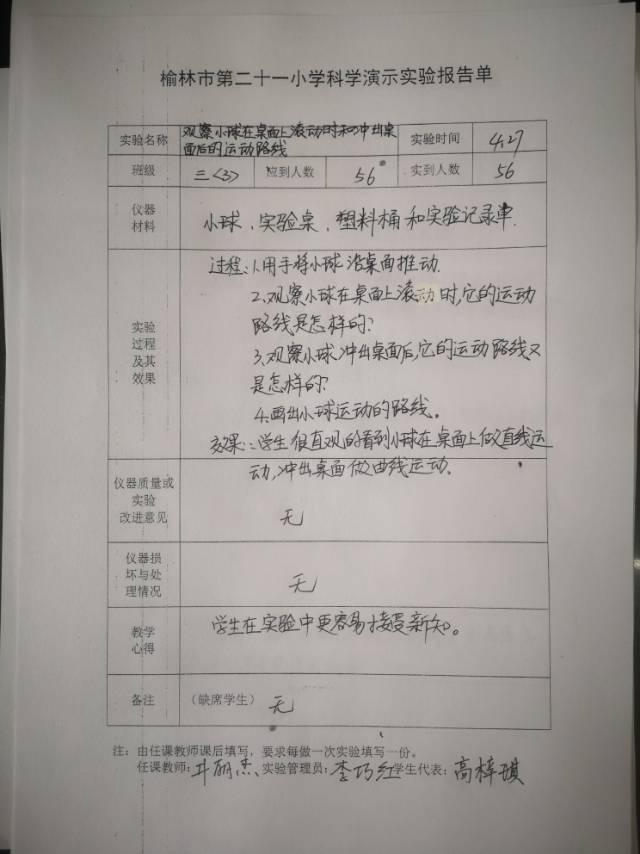 榆林市第二十一小学科学演示实验报告单
实验名称 观察小球在桌面上滚动时和冲出桌面后的运动路线 实验时间 4.27
班级 三<3> 应到人数 56 实到人数 56
仪器材料 小球、实验桌、塑料桶和实验记录单.
实验过程及其效果
过程:1.用手将小球沿桌面推动.
2.观察小球在桌面上滚动时,它的运动
路线是怎样的?
3.观察小球冲出桌面后,它的运动路线又
是怎样的?
4.画出小球运动的路线。
效果:学生很直观的看到小球在桌面上做直线运
动,冲出桌面做曲线运动.
仪器质量或实验改进意见 无
仪器损坏与处理情况 无
教学心得 学生在实验中更容易接受新知。
备注 (缺席学生) 无
注:由任课教师课后填写,要求每做一次实验填写一份。
任课教师:井丽杰 实验管理员:李巧红 学生代表:高梓琪